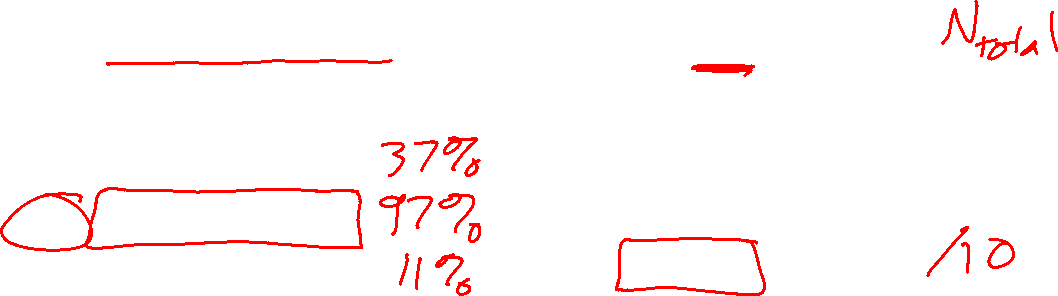 Ntotal
37%
97%
11%
/10